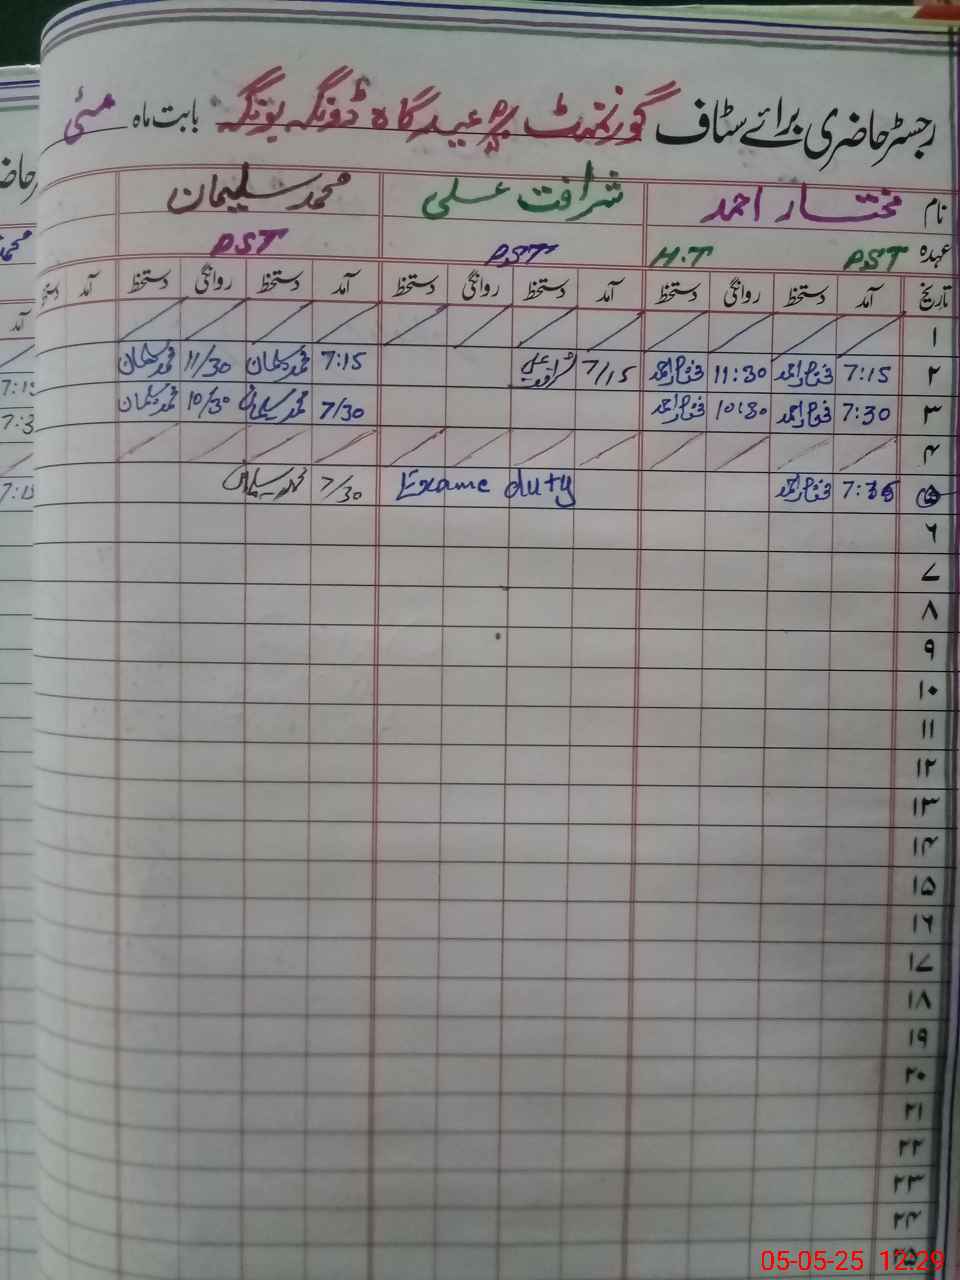 رجسٹر حاضری برائے سٹاف گورنمنٹ پرٕ عیدگاہ ڈونگہ بونگہ بابت ماہ مئی
نام مختار احمد شرافت علی محمد سلیمان
عہدہ PST H.T PST PST
تاریخ آمد دستخط روانگی دستخط آمد دستخط روانگی دستخط آمد دستخط روانگی دستخط آمد
۱
۲ 7:15 مختار احمد 11:30 مختار احمد 7/15 شرافت علی 7:15 محمد سلیمان 11/30 محمد سلیمان
۳ 7:30 مختار احمد 10:30 مختار احمد 7/30 محمد سلیمان 10/30 محمد سلیمان
۴
۵ مختار احمد Exame duty 7/30 محمد سلیمان
۶
۷
۸
۹
۱۰
۱۱
۱۲
۱۳
۱۴
۱۵
۱۶
۱۷
۱۸
۱۹
۲۰
۲۱
۲۲
۲۳
۲۴
۲۵
05-05-25 12:29